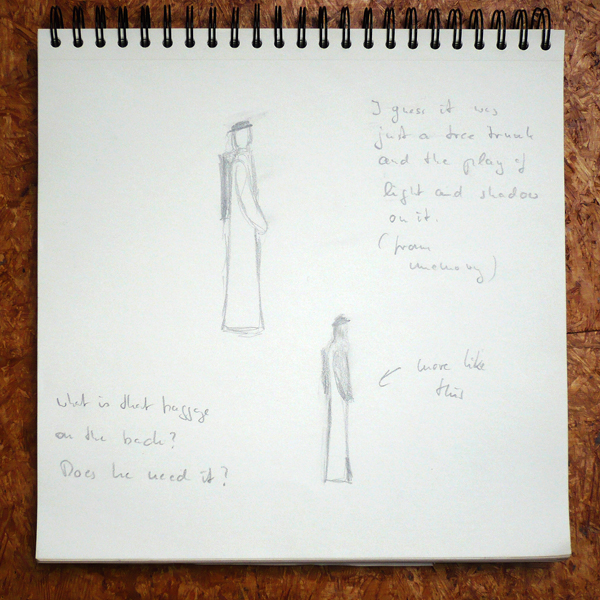 I guess it was
just a tree trunk
and the play of
light and shadow
on it.
(from
memory)
more like
this
what is that baggage
on the back?
Does he need it?